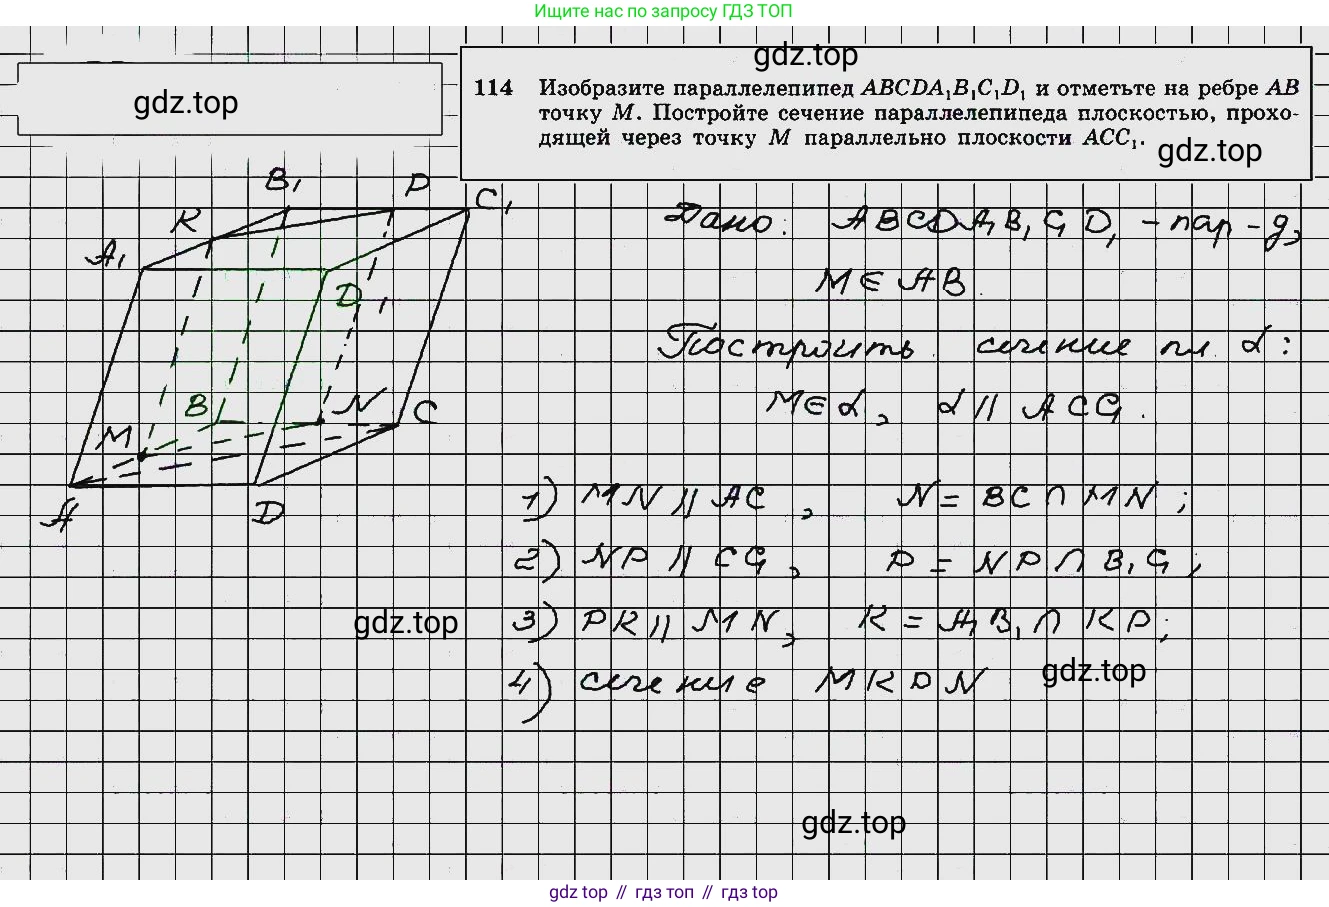 Ищите нас по запросу ГДЗ ТОП
gdz.top
gdz.top
114 Изобразите параллелепипед ABCDA₁B₁C₁D₁ и отметьте на ребре AB
точку M. Постройте сечение параллелепипеда плоскостью, прохо-
дящей через точку M параллельно плоскости ACC₁.
gdz.top
B₁ P C₁
K
A₁
D₁
B N C
M
A D
Дано: ABCDA₁B₁C₁D₁ - пар-д,
M ∈ AB.
Построить сечение пл. α:
M ∈ α, α || ACC₁.
1) MN || AC, N = BC ∩ MN;
2) NP || CC₁, P = NP ∩ B₁C₁;
gdz.top
3) PK || MN, K = A₁B₁ ∩ KP;
4) сечение MKPN
gdz.top
gdz.top
gdz top // гдз топ // gdz top